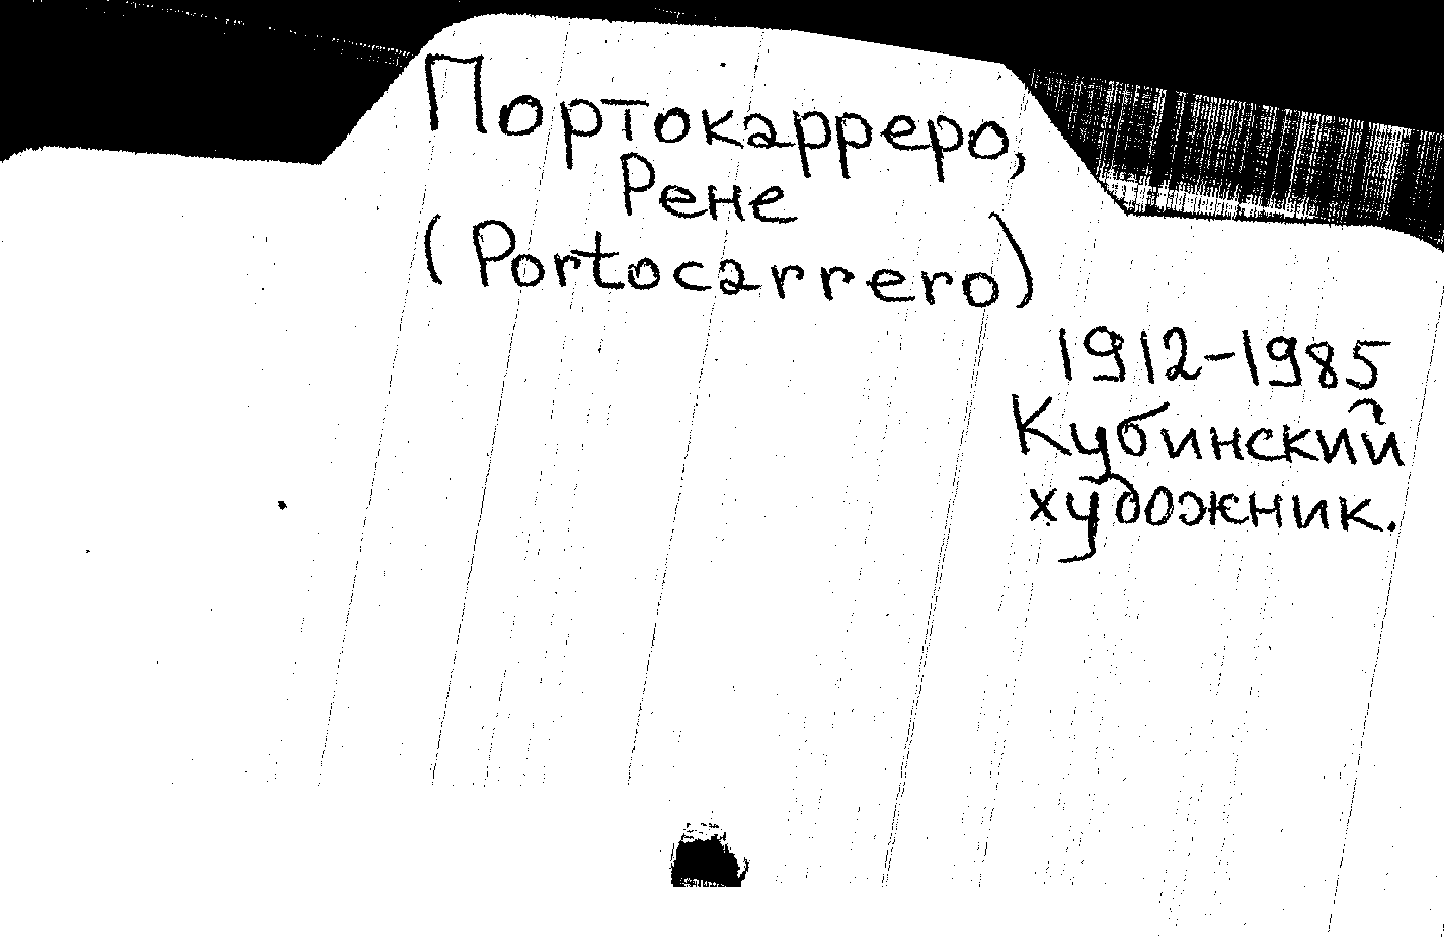 Портокарреро,
Рене
(Portocarrero)
1912-1985
Кубинский
художник.